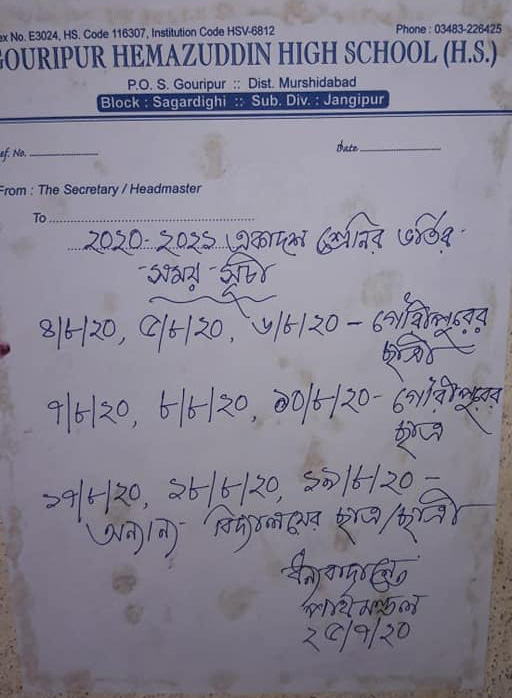 ex No. E3024, HS. Code 116307, Institution Code HSV-6812
Phone : 03483-226425
GOURIPUR HEMAZUDDIN HIGH SCHOOL (H.S.)
P.O. S. Gouripur :: Dist. Murshidabad
Block : Sagardighi :: Sub. Div. : Jangipur
ef. No.
Date
From : The Secretary / Headmaster
To
২০২০-২০২১ একাদশ শ্রেনির ভর্তির
সময় সূচী
৪/৮/২০, ৫/৮/২০, ৬/৮/২০ - গৌরীপুরের
ছাত্রী
৭/৮/২০, ৮/৮/২০, ১০/৮/২০- গৌরীপুরের
ছাত্র
১৭/৮/২০, ১৮/৮/২০, ১৯/৮/২০ -
অন্যান্য বিদ্যালয়ের ছাত্র/ছাত্রী
ধন্যবাদান্তে
২৫/৭/২০